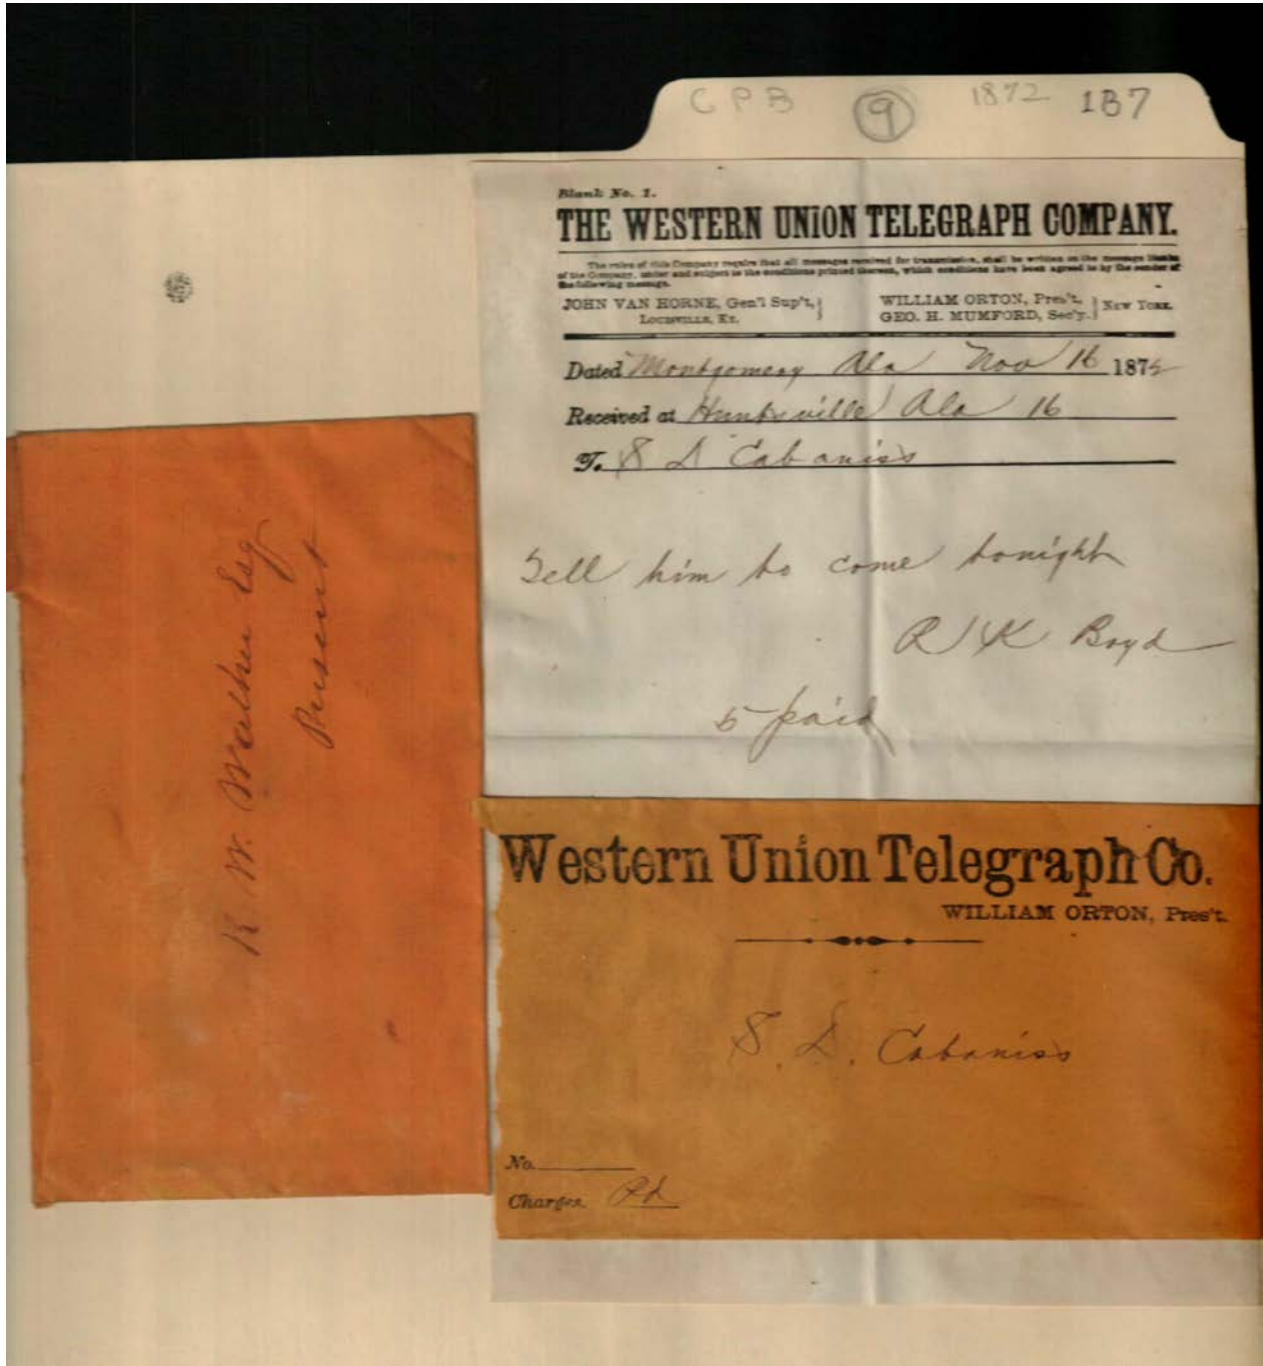 C P B 9 1872 1B7
Blank No. 1.
THE WESTERN UNION TELEGRAPH COMPANY.
The rules of this Company require that all messages received for transmission, shall be written on the message blanks
of the Company, under and subject to the conditions printed thereon, which conditions have been agreed to by the sender of
the following message.
JOHN VAN HORNE, Gen'l Sup't, WILLIAM ORTON, Pres't, NEW YORK.
LOUISVILLE, KY. GEO. H. MUMFORD, Sec'y.
Dated Montgomery Ala Nov 16 1872
Received at Huntsville Ala 16
To S D Cabaniss
Tell him to come tonight
R K Boyd
5 paid
R. W. Walker Esq
Present
Western Union Telegraph Co.
WILLIAM ORTON, Pres't.
S. D. Cabaniss
No.
Charges Pd